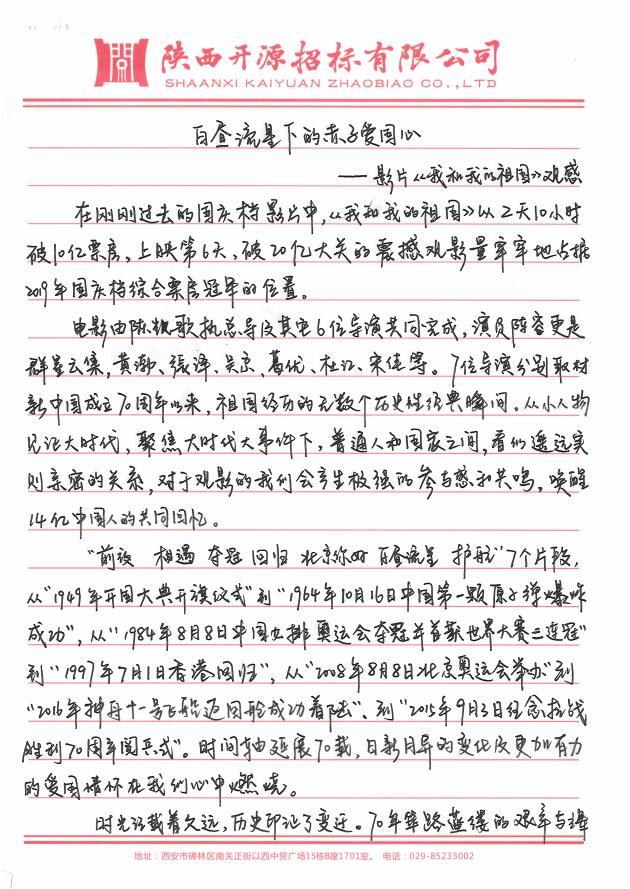 陕西开源招标有限公司
SHAANXI KAIYUAN ZHAOBIAO CO.,LTD
白昼流星下的赤子爱国心
——影片《我和我的祖国》观感
在刚刚过去的国庆档影片中,《我和我的祖国》以2天10小时
破10亿票房,上映第6天,破20亿大关的震撼观影量牢牢地占据
2019年国庆档综合票房冠军的位置。
电影由陈凯歌执总导及其它6位导演共同完成,演员阵容更是
群星云集,黄渤、张译、吴京、葛优、杜江、宋佳等。7位导演分别取材
新中国成立70周年以来,祖国经历的无数个历史性经典瞬间。从小人物
见证大时代,聚焦大时代大事件下,普通人和国家之间,看似遥远实
则亲密的关系,对于观影的我们会产生极强的参与感和共鸣,唤醒
14亿中国人的共同回忆。
“前夜 相遇 夺冠 回归 北京你好 白昼流星 护航”7个片段,
从“1949年开国大典升旗仪式”到“1964年10月16日中国第一颗原子弹爆炸
成功”,从“1984年8月8日中国女排奥运会夺冠并首获世界大赛三连冠”
到“1997年7月1日香港回归”,从“2008年8月8日北京奥运会举办”到
“2016年神舟十一号飞船返回舱成功着陆”、到“2015年9月3日纪念抗战
胜利70周年阅兵式”。时间轴延展70载,日新月异的变化及更加有力
的爱国情怀在我们心中燃烧。
时光记载着久远,历史印证了变迁。70年筚路蓝缕的艰辛与
地址:西安市碑林区南关正街以西中贸广场15栋B座1701室。 电话:029-85233002